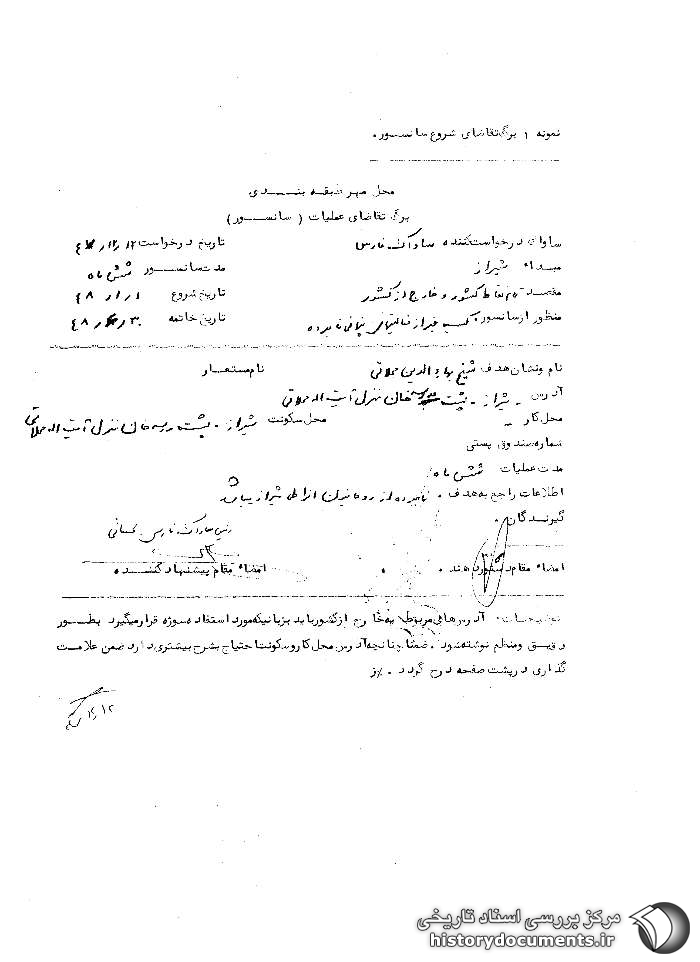 نمونه ۱ برگ تقاضای شروع سانسور .
محل مهر طبقه بندی
برگ تقاضای عملیات ( سانسور )
ساواک درخواست کننده ساواک فارس تاریخ درخواست
مبداء شیراز مدت سانسور شش ماه
مقصد تمام نقاط کشور و خارج از کشور تاریخ شروع ۴۸/۱/۱
منظور از سانسور کسب خبر از فعالیتهای پنهانی نامبرده تاریخ خاتمه
نام و نشان هدف شیخ بهاءالدین محلاتی نام مستعار
آدرس - شیراز - پشت خان منزل آیت اله محلاتی
محل کار - محل سکونت شیراز - پشت مدرسه خان منزل آیت اله محلاتی
شماره صندوق پستی
مدت عملیات شش ماه
اطلاعات راجع به هدف . نامبرده از روحانیون افراطی شیراز میباشد
گیرندگان .
رئیس ساواک فارس .
امضاء مقام دستور دهنده . امضاء مقام پیشنهاد کننده
توضیحات : آدرسهای مربوط به خارج از کشور باید بزبانیکه مورد استفاده سوژه قرار میگیرد بطور
دقیق و منظم نوشته شود . ضمناً چنانچه آدرس محل کار و سکونت احتیاج بشرح بیشتری دارد ضمن علامت
گذاری در پشت صفحه درج گردد .
مرکز بررسی اسناد تاریخی
historydocuments.ir